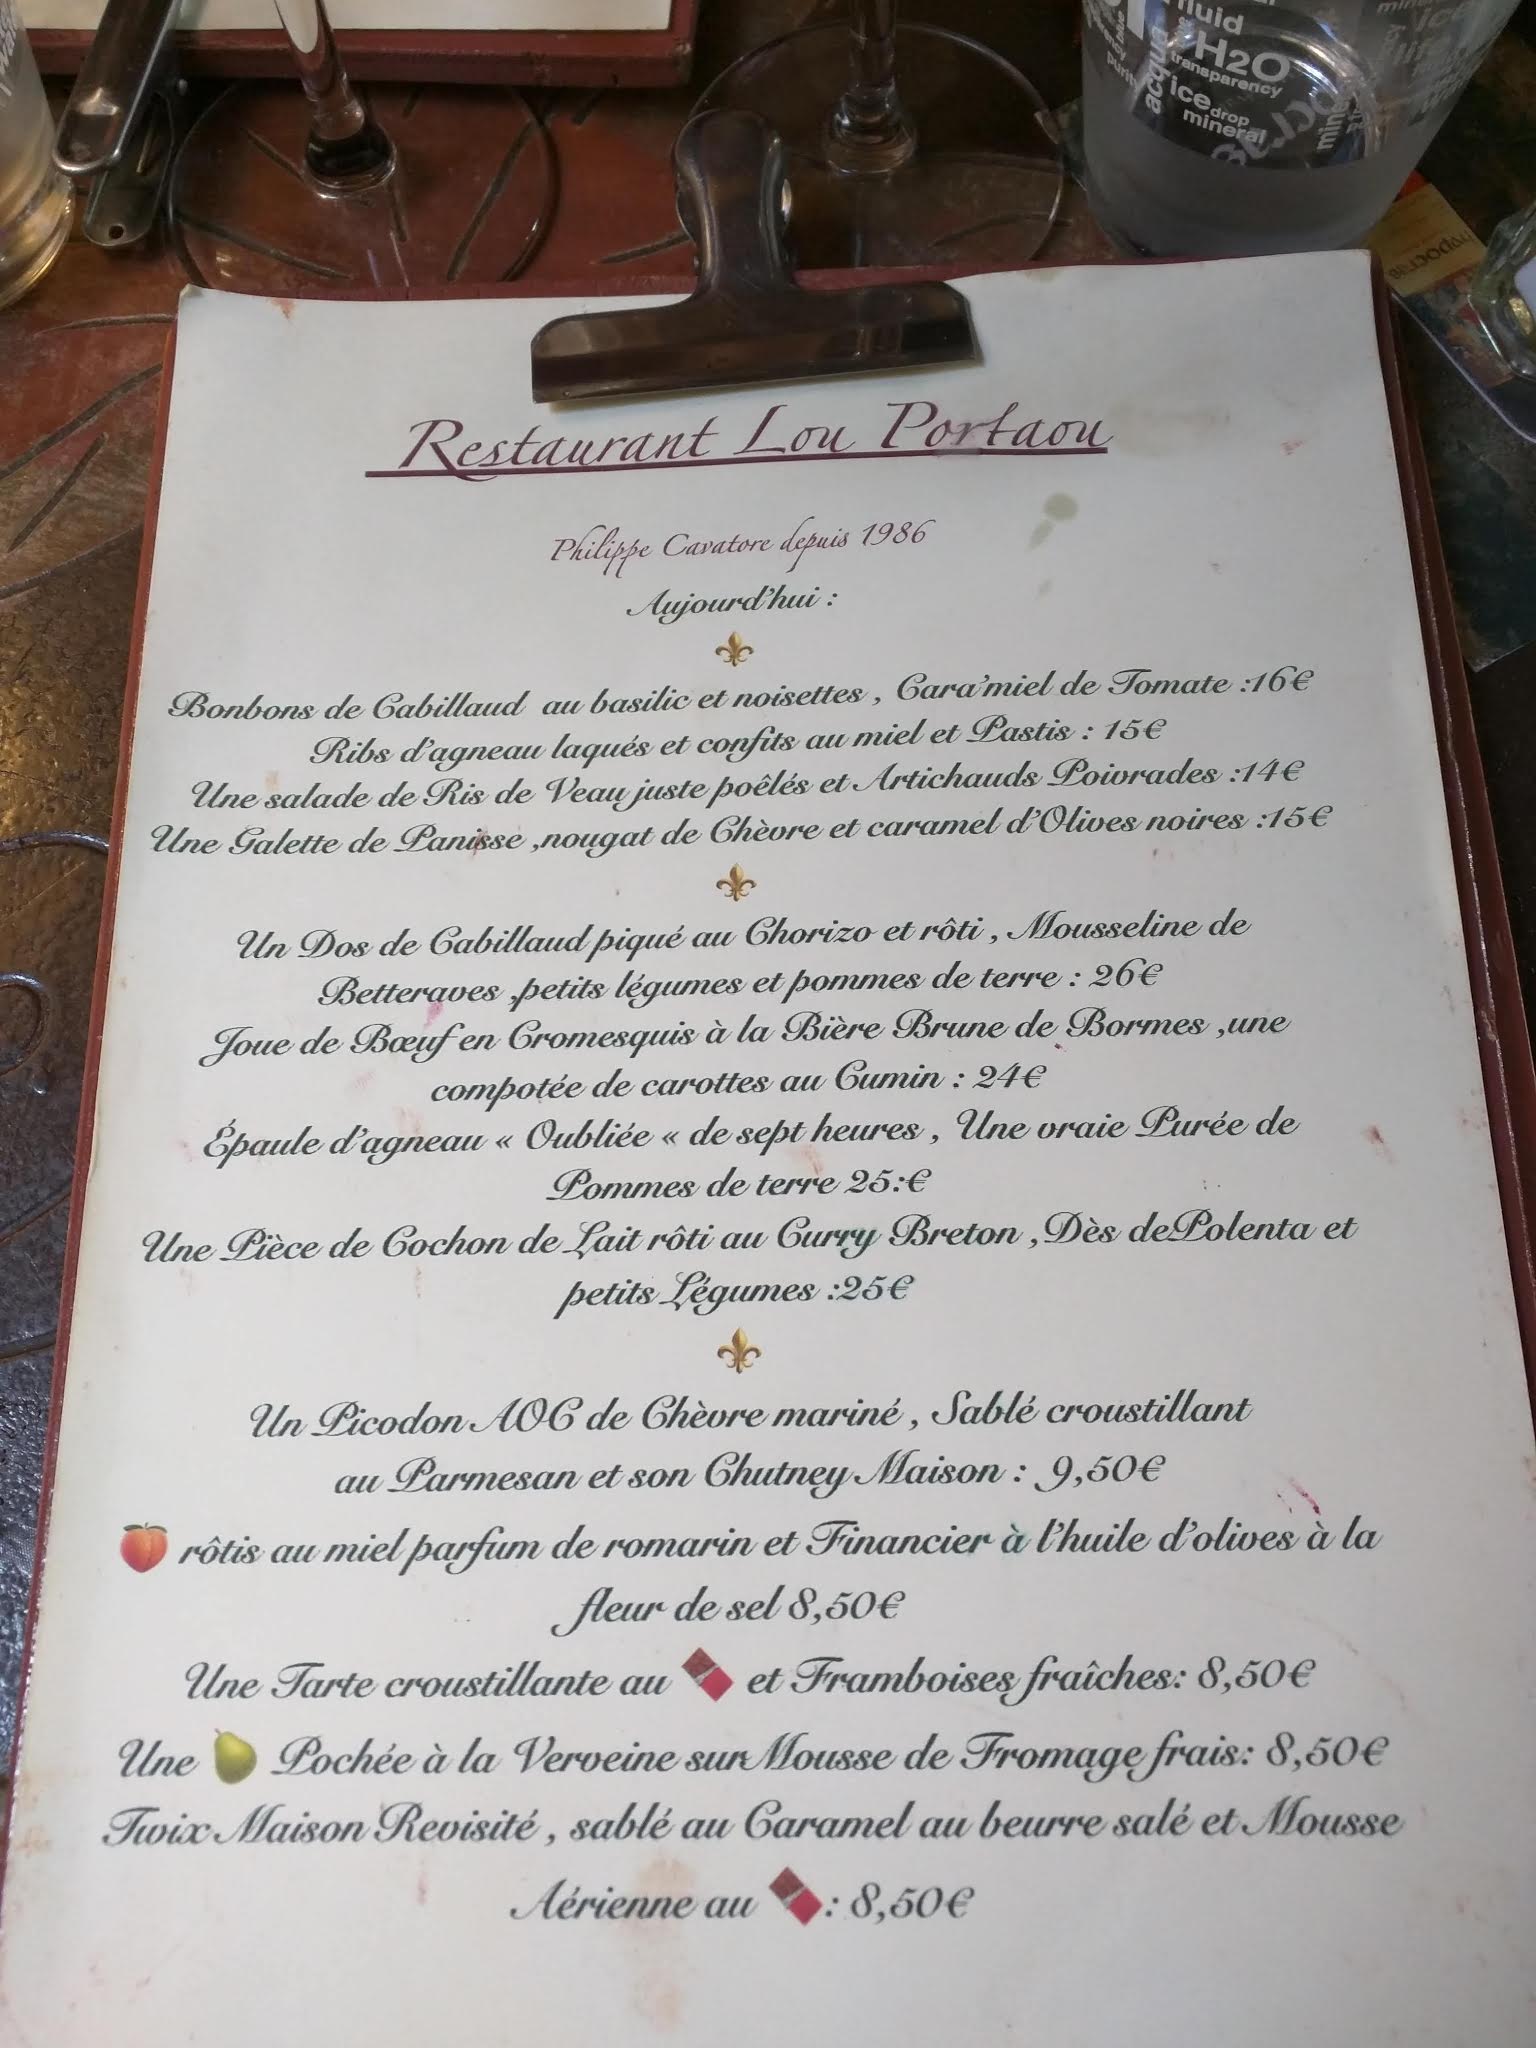 fluid
H2O
transparency
acqua
ice drop
mineral
Restaurant Lou Portaou
Philippe Cavatore depuis 1986
Aujourd'hui :
Bonbons de Cabillaud au basilic et noisettes , Cara'miel de Tomate :16€
Ribs d'agneau laqués et confits au miel et Pastis : 15€
Une salade de Ris de Veau juste poêlés et Artichauds Poivrades :14€
Une Galette de Panisse ,nougat de Chèvre et caramel d'Olives noires :15€
Un Dos de Cabillaud piqué au Chorizo et rôti , Mousseline de
Betteraves ,petits légumes et pommes de terre : 26€
Joue de Bœuf en Cromesquis à la Bière Brune de Bormes ,une
compotée de carottes au Cumin : 24€
Épaule d'agneau « Oubliée « de sept heures , Une vraie Purée de
Pommes de terre 25:€
Une Pièce de Cochon de Lait rôti au Curry Breton , Dès dePolenta et
petits Légumes :25€
Un Picodon AOC de Chèvre mariné , Sablé croustillant
au Parmesan et son Chutney Maison : 9,50€
🍑 rôtis au miel parfum de romarin et Financier à l'huile d'olives à la
fleur de sel 8,50€
Une Tarte croustillante au 🍫 et Framboises fraîches: 8,50€
Une 🍐 Pochée à la Verveine sur Mousse de Fromage frais: 8,50€
Twix Maison Revisité , sablé au Caramel au beurre salé et Mousse
Aérienne au 🍫: 8,50€